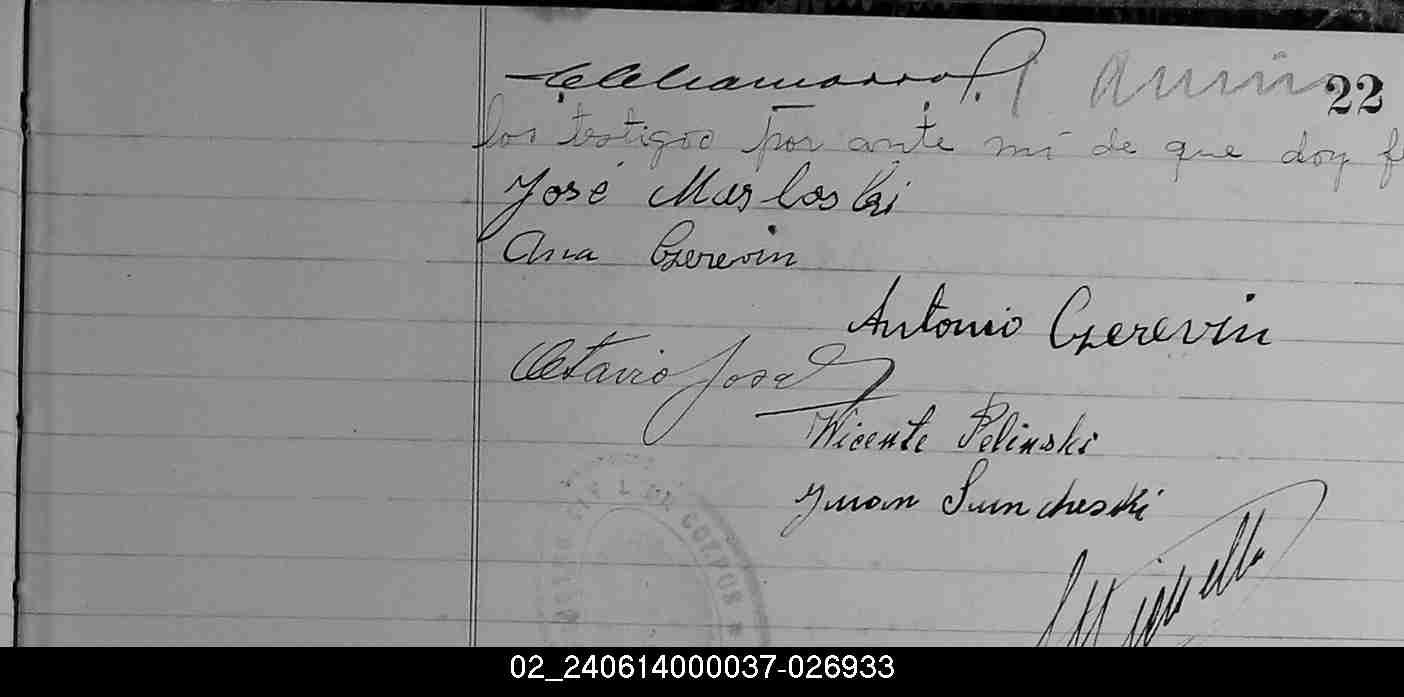 22
los testigos por ante mí de que doy
José Marloski
Ana Czerevin
Antonio Czerevin
Octavio José
Vicente Pelinski
Juan Suncheski
02_240614000037-026933